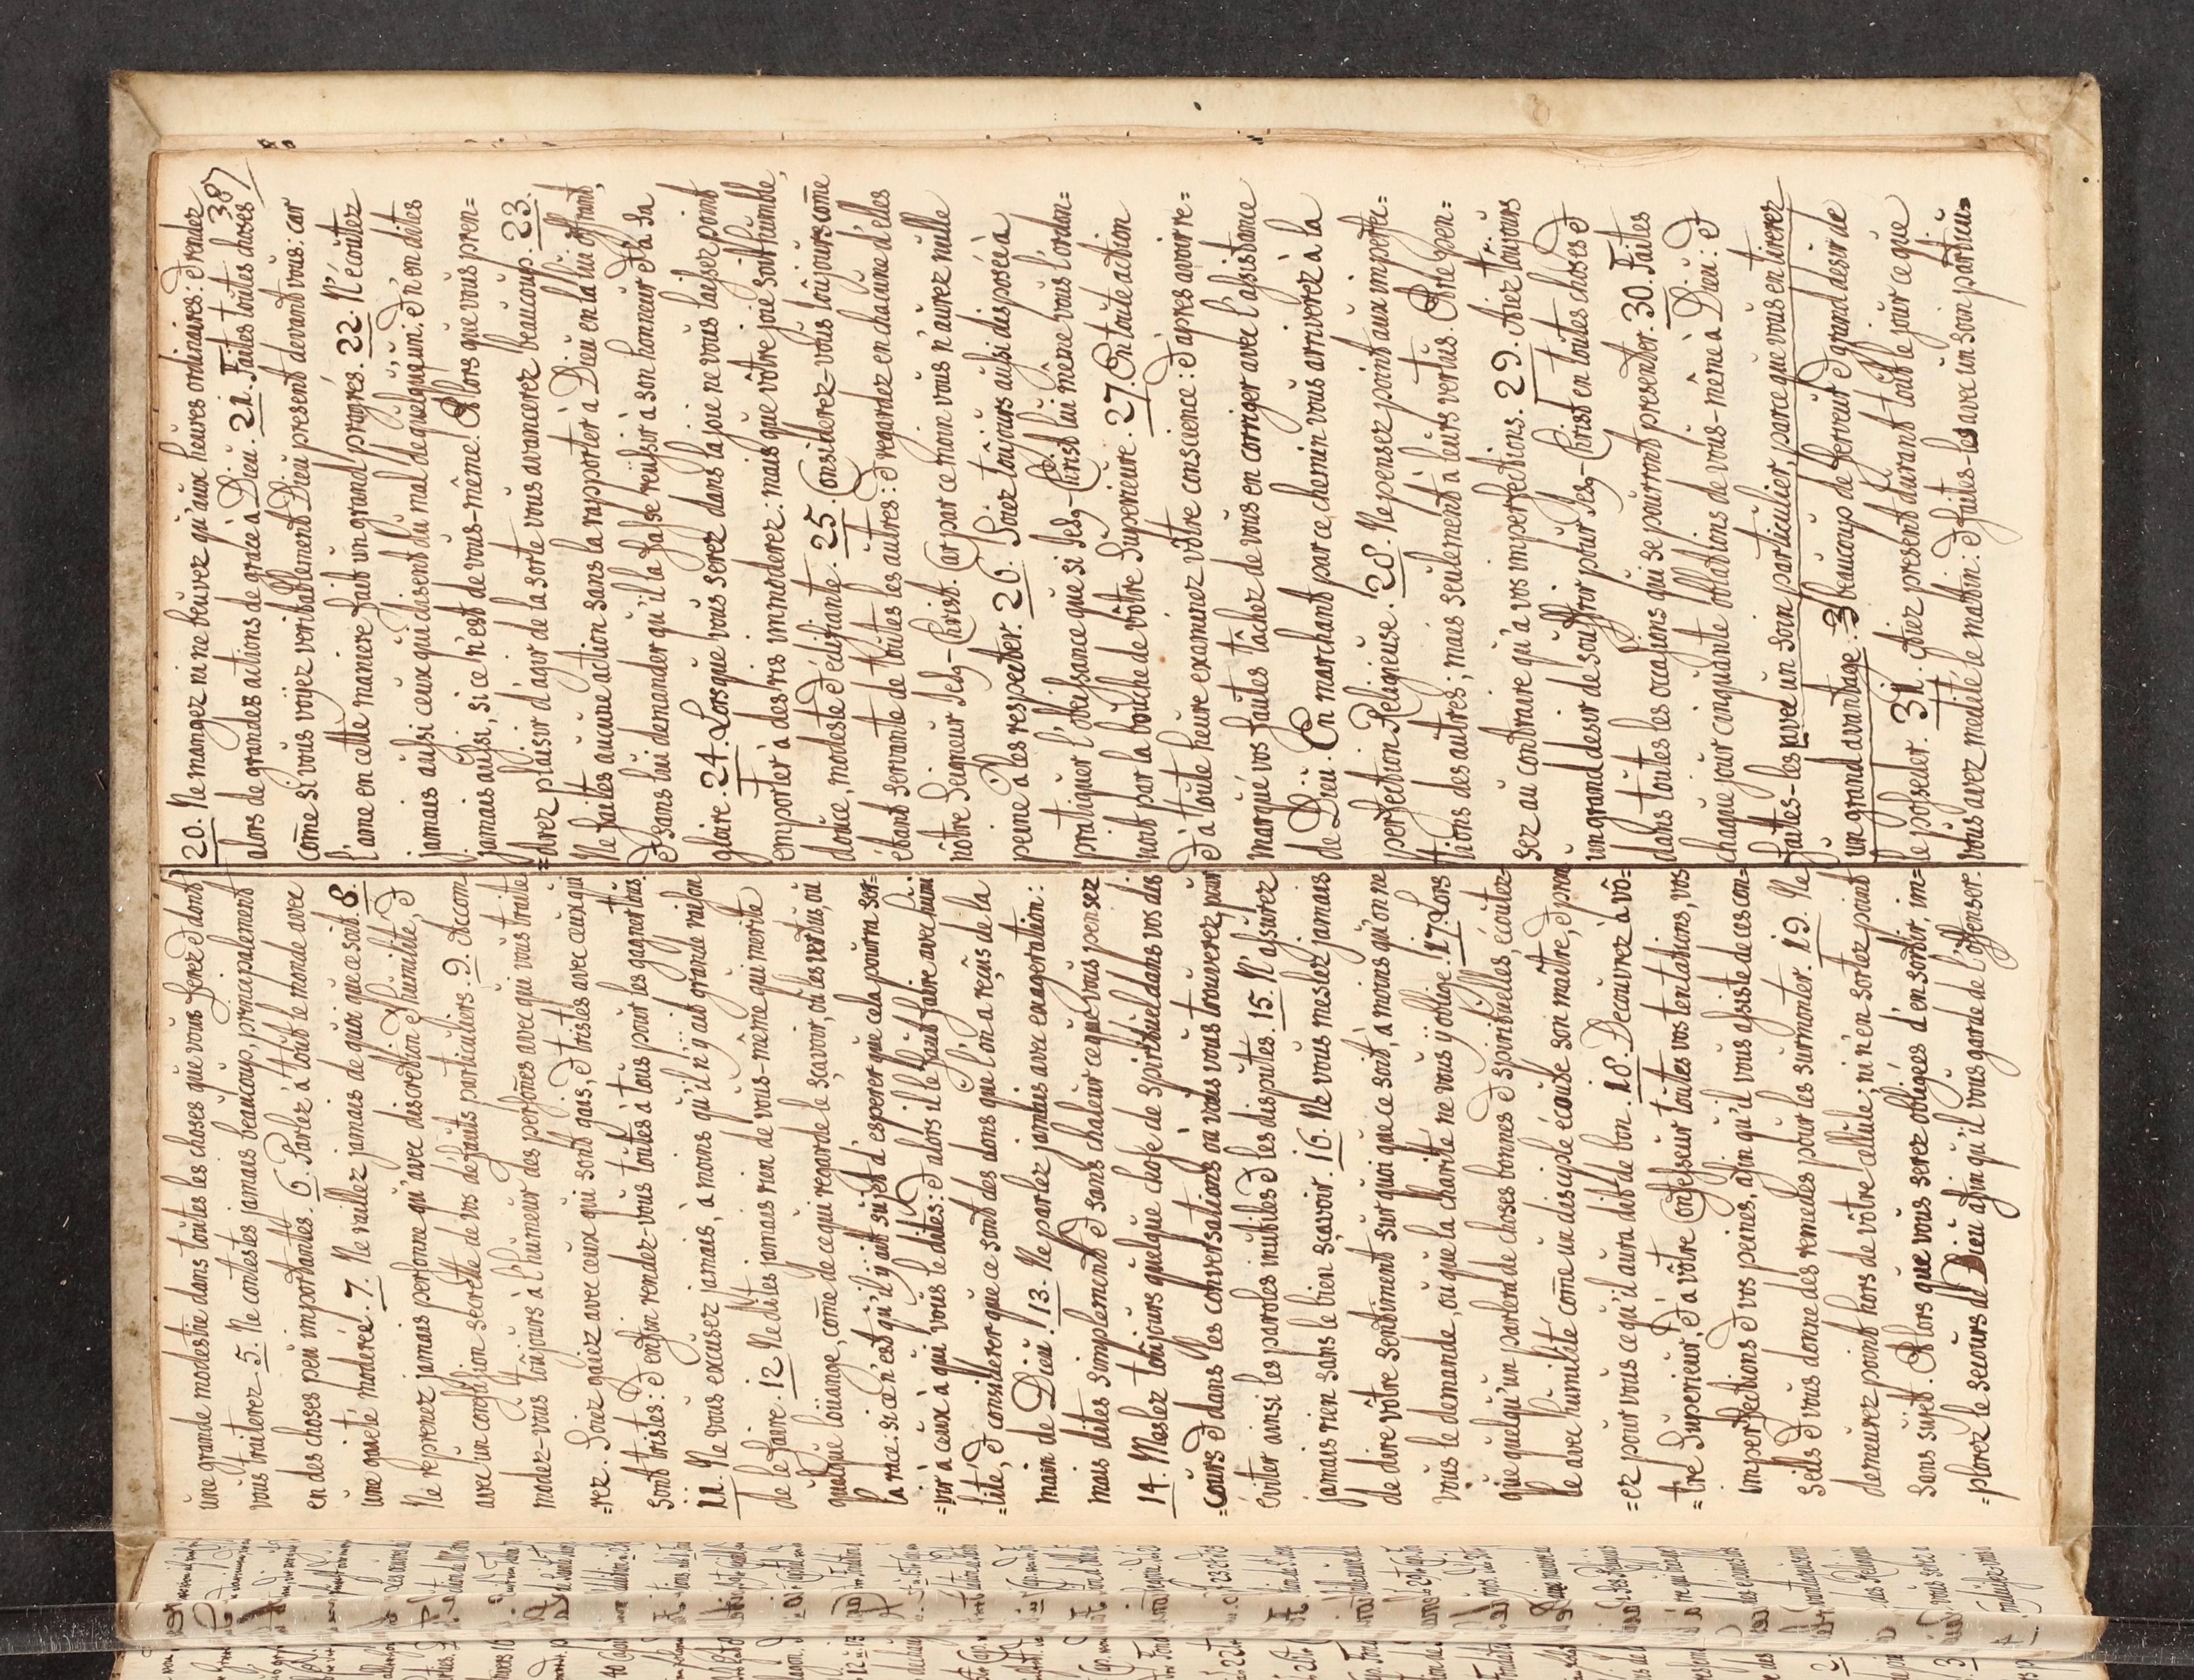 une grande modestie dans toutes les choses que vous ferez et dont
vous traiterez. 5. Ne contestes jamais beaucoup, principalement
en des choses peu importantes. 6. Parlez à tout le monde avec
une gaieté moderée. 7. Ne raillez jamais de quoi que ce soit. 8.
Ne reprenez jamais personne qu'avec discretion et humilité, et
avec un confusion secrette de vos defauts particuliers. 9. Accom
modez-vous toujours à l'humeur des persones avec qui vous traite
=rez. Soiez gaiez avec ceux qui sont gais, et tristes avec ceux qui
sont tristes: et enfin rendez-vous toutes à tous pour les gagner tous.
11. Ne vous excusez jamais, à moins qu'il n'y ait grande raison
de le faire. 12 Ne dites jamais rien de vous-même qui merite
quelque loüange, come de ce qui regarde le sçavoir, ou les vertus, ou
la race. si ce n'est qu'il y ait sujet d'esperer que cela pourra ser=
=vir à ceux à qui vous le dittes: et alors il le faut faire avec humi
=lité, et considerer que ce sont des dons que l'on a reçus de la
main de Dieu. 13. Ne parlez jamais avec exageration:
mais dites simplement et sans chaleur ce que vous pensez
14. Meslez toujours quelque chose de spirituel dans vos dis
=cours et dans les conversations où vous vous trouverez pour
éviter ainsi les paroles inutiles et les disputes. 15. N'assurez
jamais rien sans le bien sçavoir. 16. Ne vous meslez jamais
de dire vôtre sentiment sur quoi que ce soit, à moins qu'on ne
vous le demande, ou que la charité ne vous y oblige. 17. Lors
que quelqu'un parlera de choses bonnes et spirituelles, écoutez-
le avec humilité come un disciple écoute son maître, et pren
=ez pour vous ce qu'il aura dit de bon. 18. Decouvrez à vô=
=tre Superieur, et à vôtre Confesseur toutes vos tentations, vos
imperfections et vos peines, afin qu'il vous assiste de ces con=
seils et vous donne des remedes pour les surmonter. 19. Ne
demeurez point hors de vôtre cellule; ni n'en sortez point
sans sujet. Alors que vous serez obligés d'en sortir, im=
=plorez le secours de Dieu afin qu'il vous garde de l'offenser.
387
20. Ne mangez ni ne beuvez qu'aux heures ordinaires: et rendez
alors de grandes actions de grace à Dieu. 21. Faites toutes choses
come si vous voyez veritablement Dieu present devant vous: car
l'ame en cette maniere fait un grand progrés. 22. N'écoutez
jamais aussi ceux qui disent du mal de quelqu'un: et n'en dites
jamais aussi, si ce n'est de vous-même. Alors que vous pren=
=drez plaisir d'agir de la sorte vous avancerez beaucoup. 23.
Ne faites aucune action sans la rapporter à Dieu en la lui offrant,
et sans lui demander qu'il la fasse reüssir à son honneur et à sa
gloire. 24. Lorsque vous serez dans la joie ne vous laissez point
emporter à des ris immoderez: mais que vôtre joie soit humble,
douce, modeste et édifiante. 25. Considerez-vous toujours come
étant servante de toutes les autres: et regardez en chacune d'elles
nôtre Seigneur Jesus-Christ. Car par ce moien vous n'aurez nulle
peine à les respecter. 26. Soiez toujours aussi disposée à
pratiquer l'obeissance que si Jesus-Christ lui même vous l'ordon=
noit par la bouche de vôtre Superieure. 27. En toute action
et à toute heure examinez vôtre conscience: et apres avoir re=
marqué vos fautes tâchez de vous en corriger avec l'assistance
de Dieu. En marchant par ce chemin vous arriverez à la
perfection Religieuse. 28. Ne pensez point aux imperfec=
tions des autres; mais seulement à leurs vertus. Et ne pen=
sez au contraire qu'à vos imperfections. 29. Aiez toujours
un grand desir de souffrir pour Jesus-Christ en toutes choses et
dans toutes les occasions qui se pourront presenter. 30. Faites
chaque jour cinquante oblations de vous-même à Dieu: et
faites-les avec un soin particulier, parce que vous en tirerez
un grand avantage. 3 beaucoup de ferveur et grand desir de
le posseder. 31. Aiez present durant tout le jour ce que
vous avez medité le matin: et faites-les avec un soin particu=